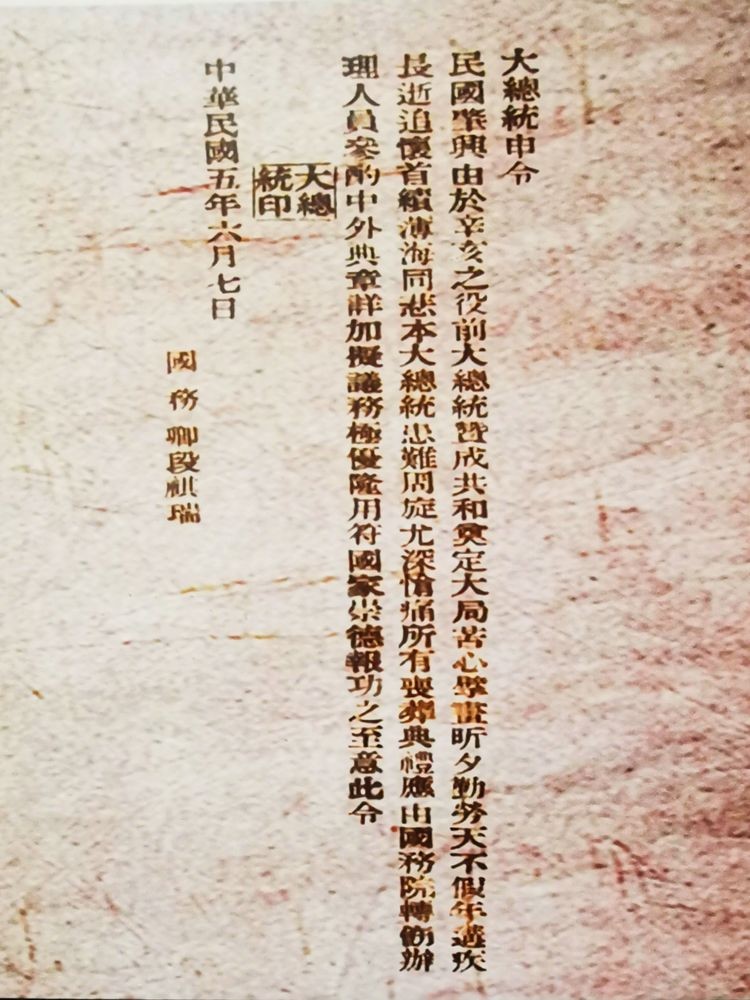 大總統申令
民國肇興由於辛亥之役前大總統贊成共和奠定大局苦心擘畫昕夕勤勞天不假年遘疾
長逝追懷首績薄海同悲本大總統患難周旋尤深愴痛所有喪葬典禮應由國務院轉飭辦
理人員參酌中外典章詳加擬議務極優隆用符國家崇德報功之至意此令
大總
統印
中華民國五年六月七日
國務卿段祺瑞